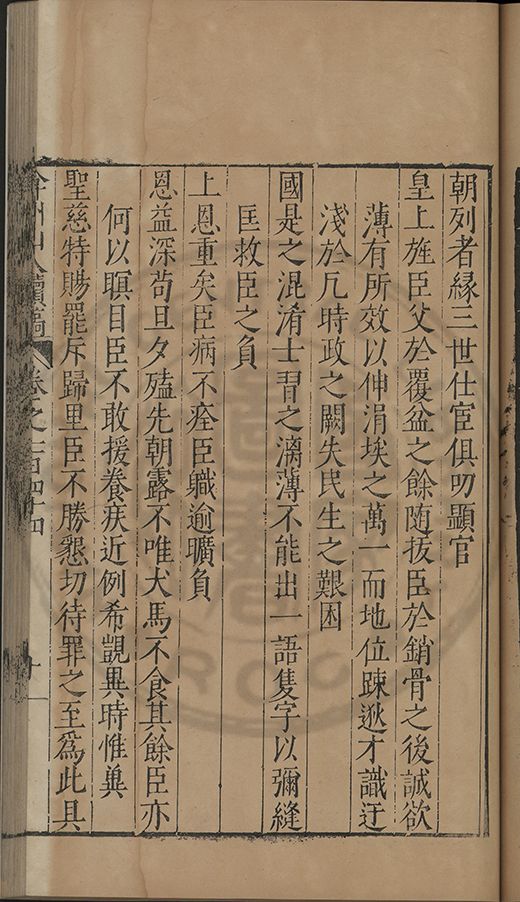 朝列者緣三世仕宦俱叨顯官
皇上旌臣父於覆盆之餘隨拔臣於銷骨之後誠欲
薄有所效以伸涓埃之萬一而地位踈逖才識迂
淺於凡時政之闕失民生之艱困
國是之混淆士習之漓薄不能出一語隻字以彌縫
匡救臣之負
上恩重矣臣病不痊臣職逾曠負
恩益深苟旦夕殪先朝露不唯犬馬不食其餘臣亦
何以瞑目臣不敢援養疾近例希覬異時惟冀
聖慈特賜罷斥歸里臣不勝懇切待罪之至爲此具
弇州山人續稿 卷之一百四十四 十一